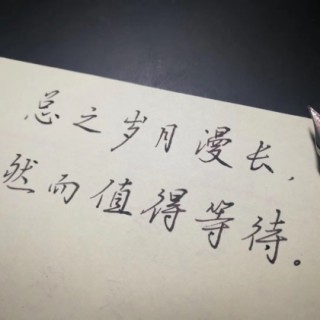 总之岁月漫长，
然而值得等待。